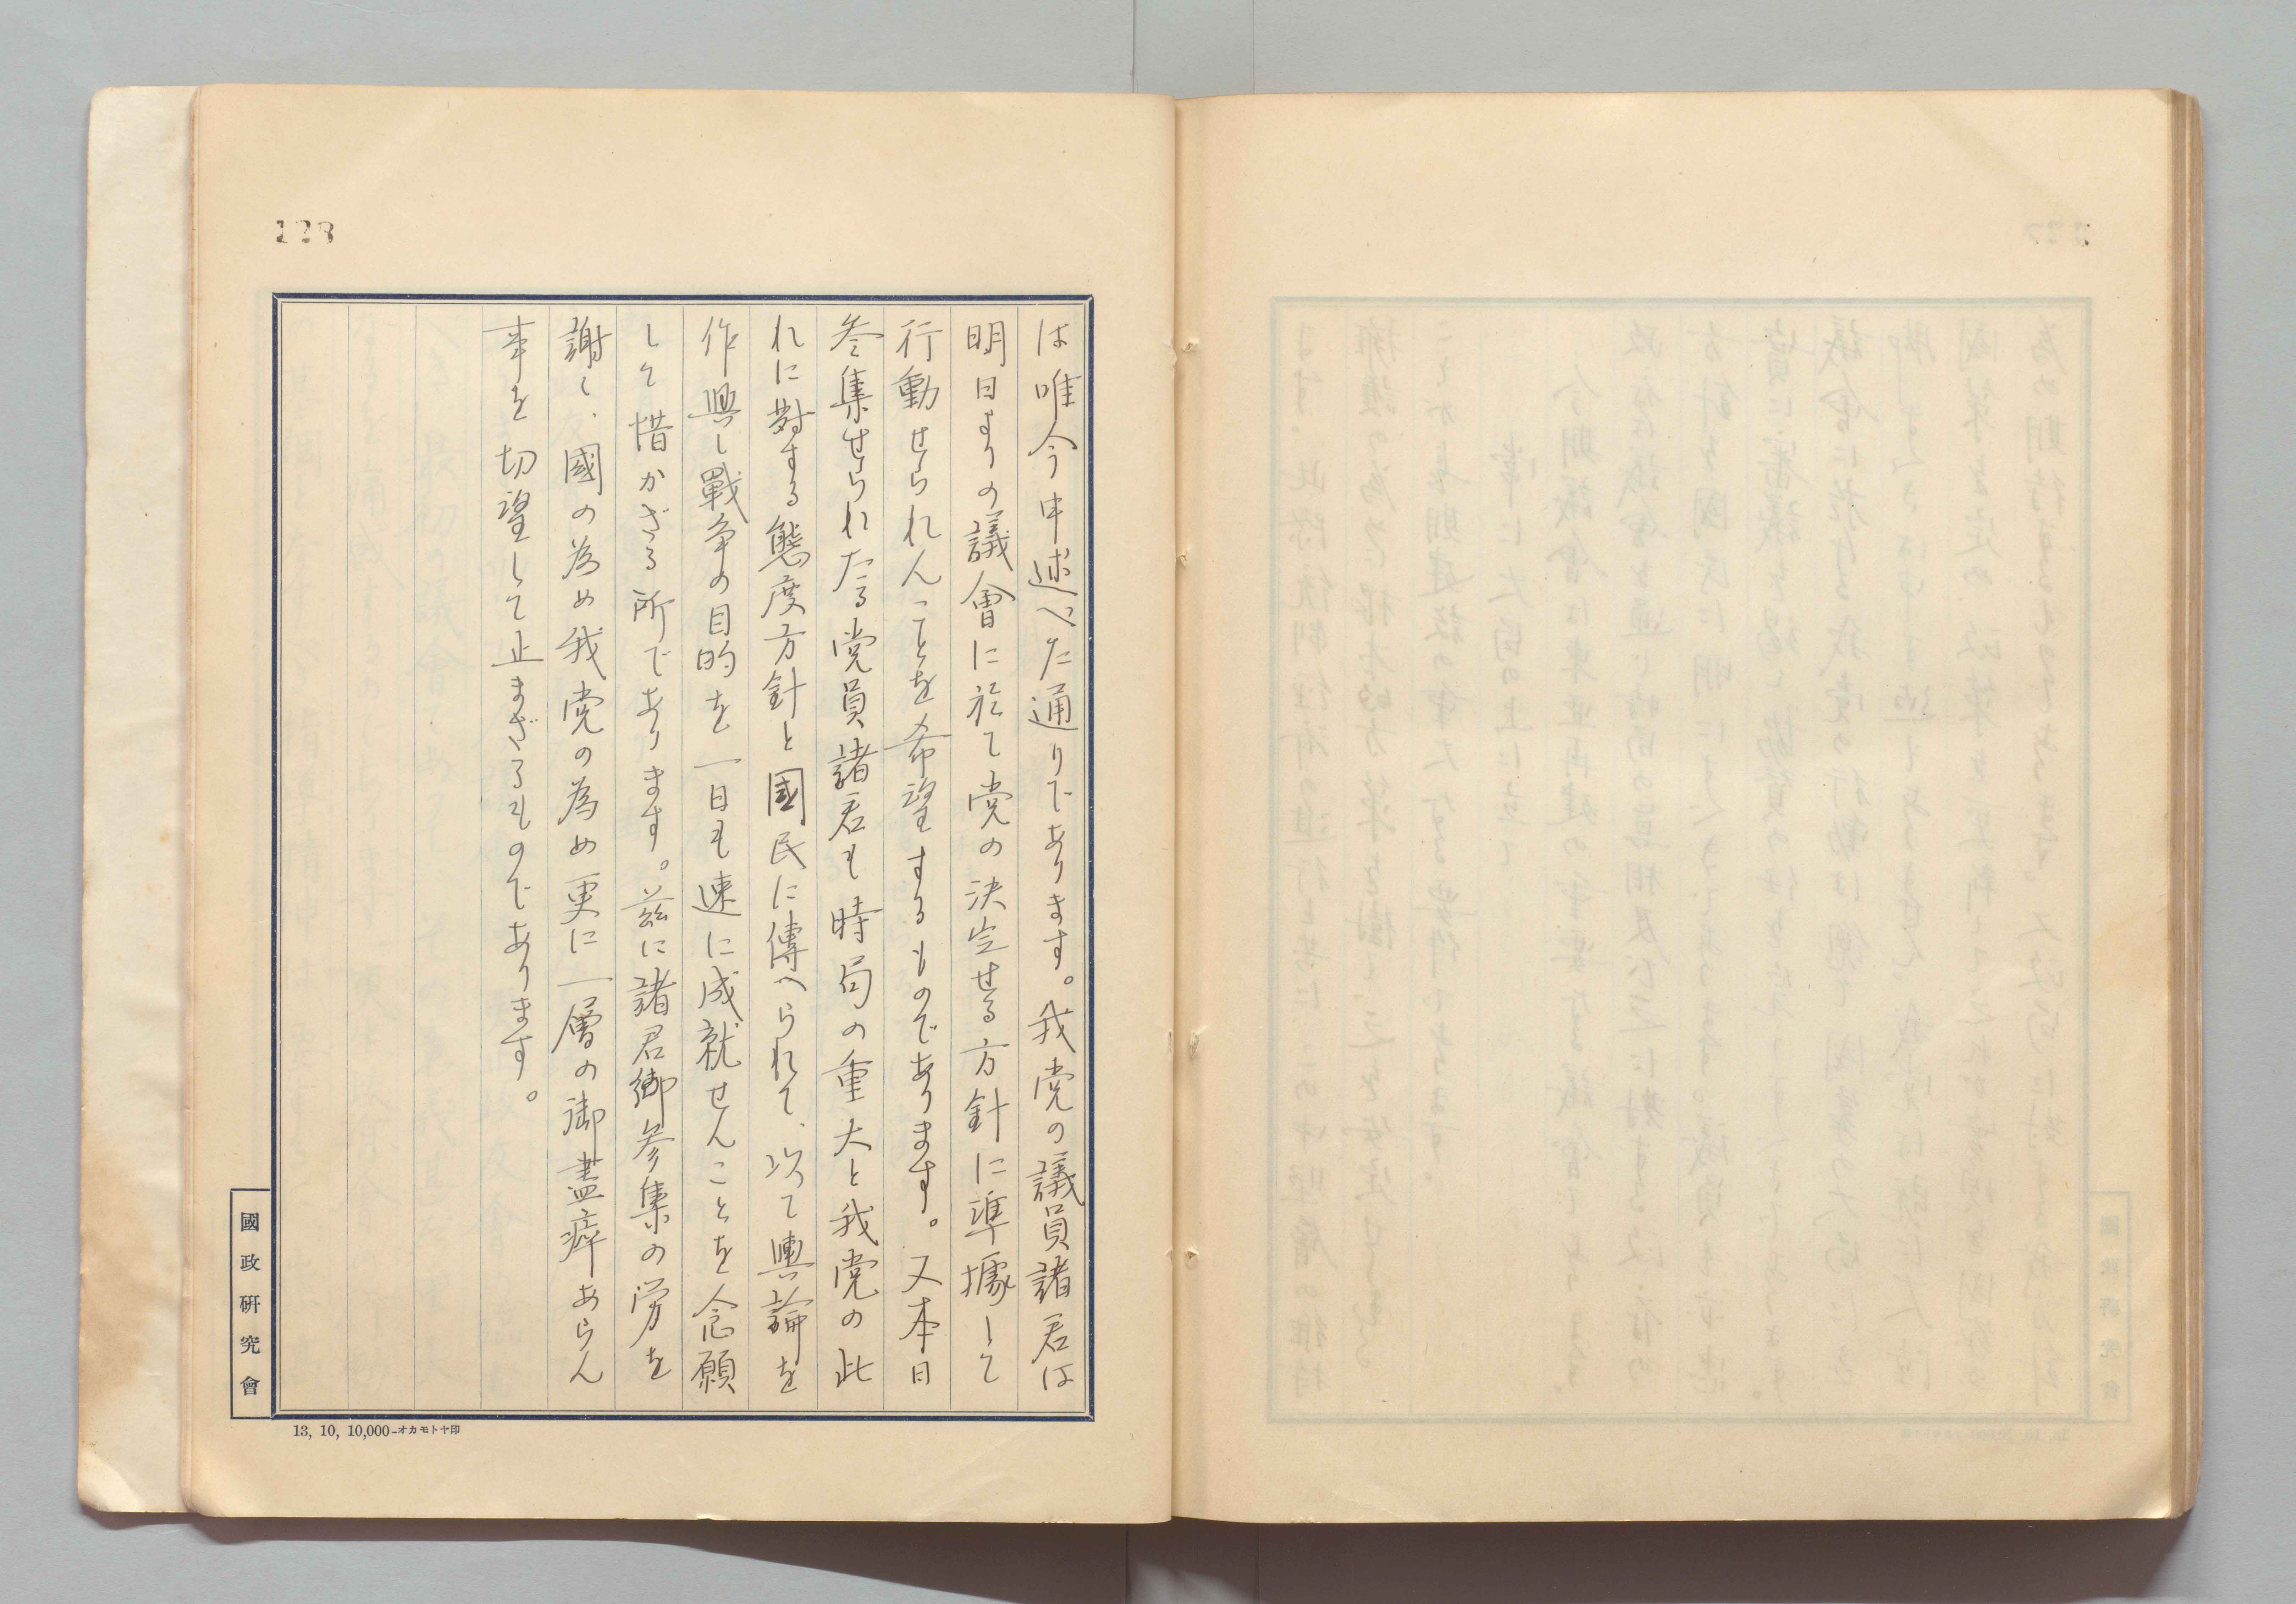 128
は唯今申述べた通りであります。我党の議員諸君は
明日よりの議會に於て党の決定せる方針に準據して
行動せられんことを希望するものであります。又本日
参集せられたる党員諸君も時局の重大と我党の此
れに対する態度方針と國民に傳へられて、以て輿論を
作興し戰争の目的を一日も速に成就せんことを念願
して惜かざる所であります。茲に諸君御参集の労を
謝し、國の為め我党の為め更に一層の御盡瘁あらん
事を切望して止まざるものであります。
國政研究會
13, 10, 10,000-オカモトヤ印